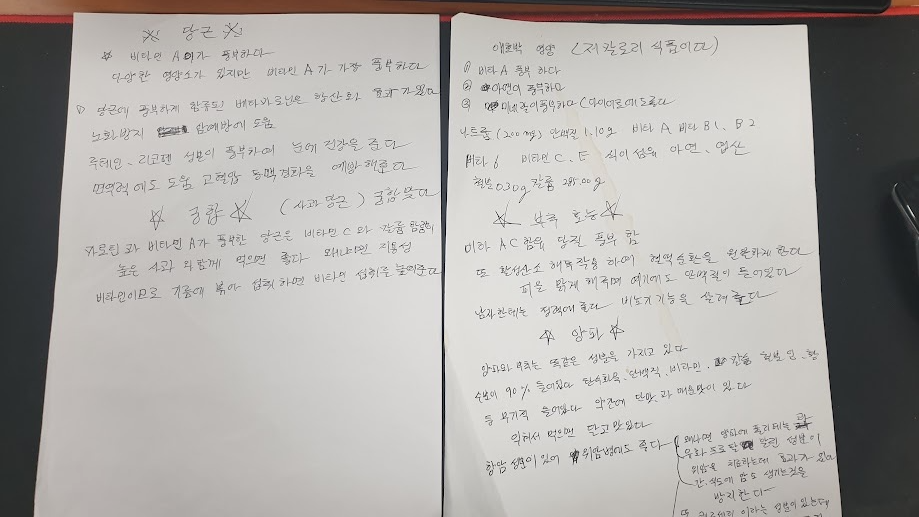 ☆ 당근 ☆
☆ 비타민 A가 풍부하다
다양한 영양소가 있지만 비타민 A가 가장 풍부하다
① 당근에 풍부하게 함류된 베타카로틴은 항산화 효과가있다
노화방지 암예방에 도움
루테인, 리코펜 성분이 풍부하여 눈에 건강을 준다
면역력에도 도움 고혈압 동맥경화을 예방해준다
☆ 궁합 ☆ (사과당근) 궁합맞다
카로틴과 비타민A가 풍부한 당근은 비타민 C와 칼륨함량이
높은 사과와 함께 먹으면 좋다 왜냐면 지용성
비타민이므로 기름에 볶아 섭취하면 비타민 섭취을 높여준다
애호박 영양 (저칼로리 식품이다)
① 비타A 풍부하다
② 아연이 풍부하다
③ 미네랄이풍부하다 (다이어트에도좋다
나트륨 (200mg) 단백질 1.10g 비타A 비타B1、B2
비타6 비타민C、E 식이섬유 아연、엽산
철분0.30g 칼륨 285.00g
☆ 부추 효능 ☆
비타 AC함유 당질 풍부 함
또 활성산소 해독작용 하여 혈액순환을 원활하게 한다
피을 맑게 해주며 여기에도 단백질이 들어있다
남자한테는 정력에 좋다 비뇨기기능을 살려준다
☆ 양파 ☆
양파와 부추는 똑같은 성분을 가지고 있다
수분이 90% 들어있다 탄수화물、단백질、비타민、칼슘 철분 인、황
등 무기질 들어있다 약간에 단맛과 매운맛이 있다
익혀서 먹으면 달고맛있다
항암 성분이 있어 위암병에도 좋다
왜냐면 양파에 폴리페놀과
알린 성분이
위암을 치료하는데 효과가 있다
간、식도에 암도 생기는것을
방지한다
또 이라는 성분이 있는데